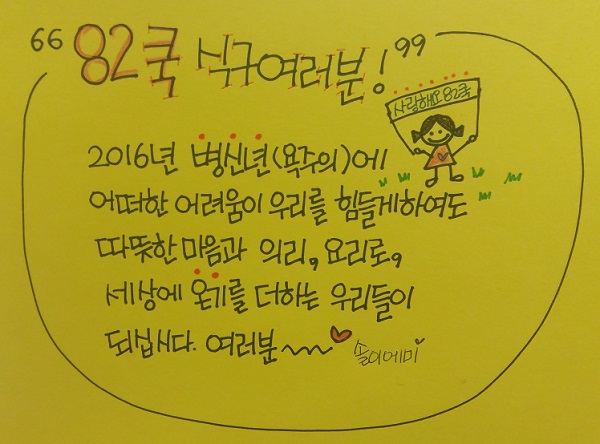 “ 82쿡 식구여러분! ”
사랑해요 82쿡
2016년 병신년(욕주의)에
어떠한 어려움이 우리를 힘들게하여도
따뜻한 마음과 의리, 요리로,
세상에 온기를 더하는 우리들이
되십시다. 여러분~
솔이에미